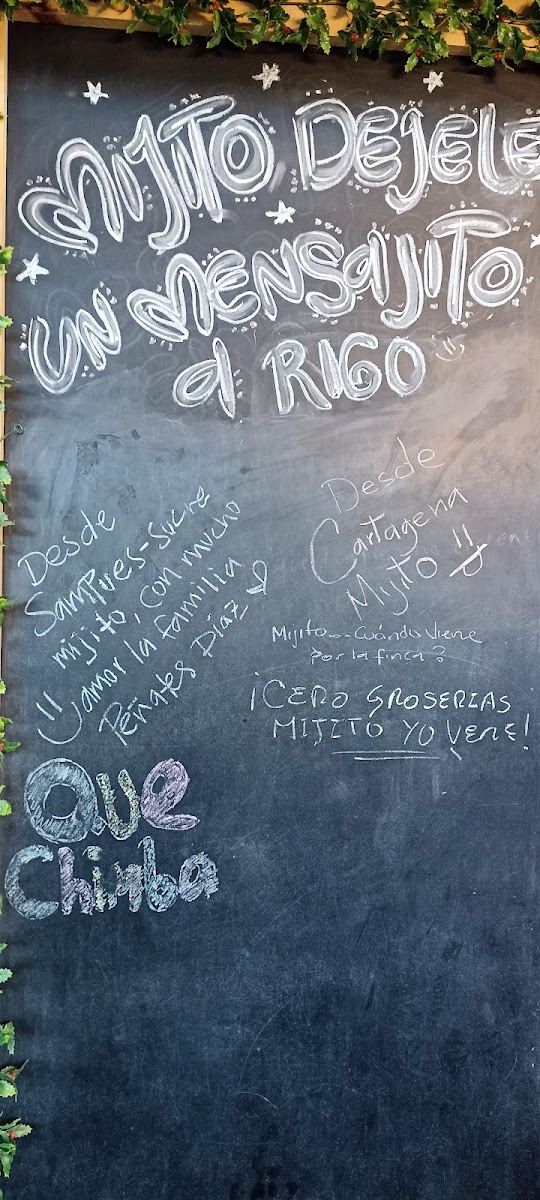 MIJITO, DEJELE
UN MENSAJITO
a RIGO
Desde
Sampues-Sucre
mijito, con mucho
amor la familia
Peñates Díaz
Desde
Cartagena
Mijito
Mijito... Cuándo viene
por la finca?
¡CERO GROSERIAS
MIJITO YO VENE!
Que
Chimba